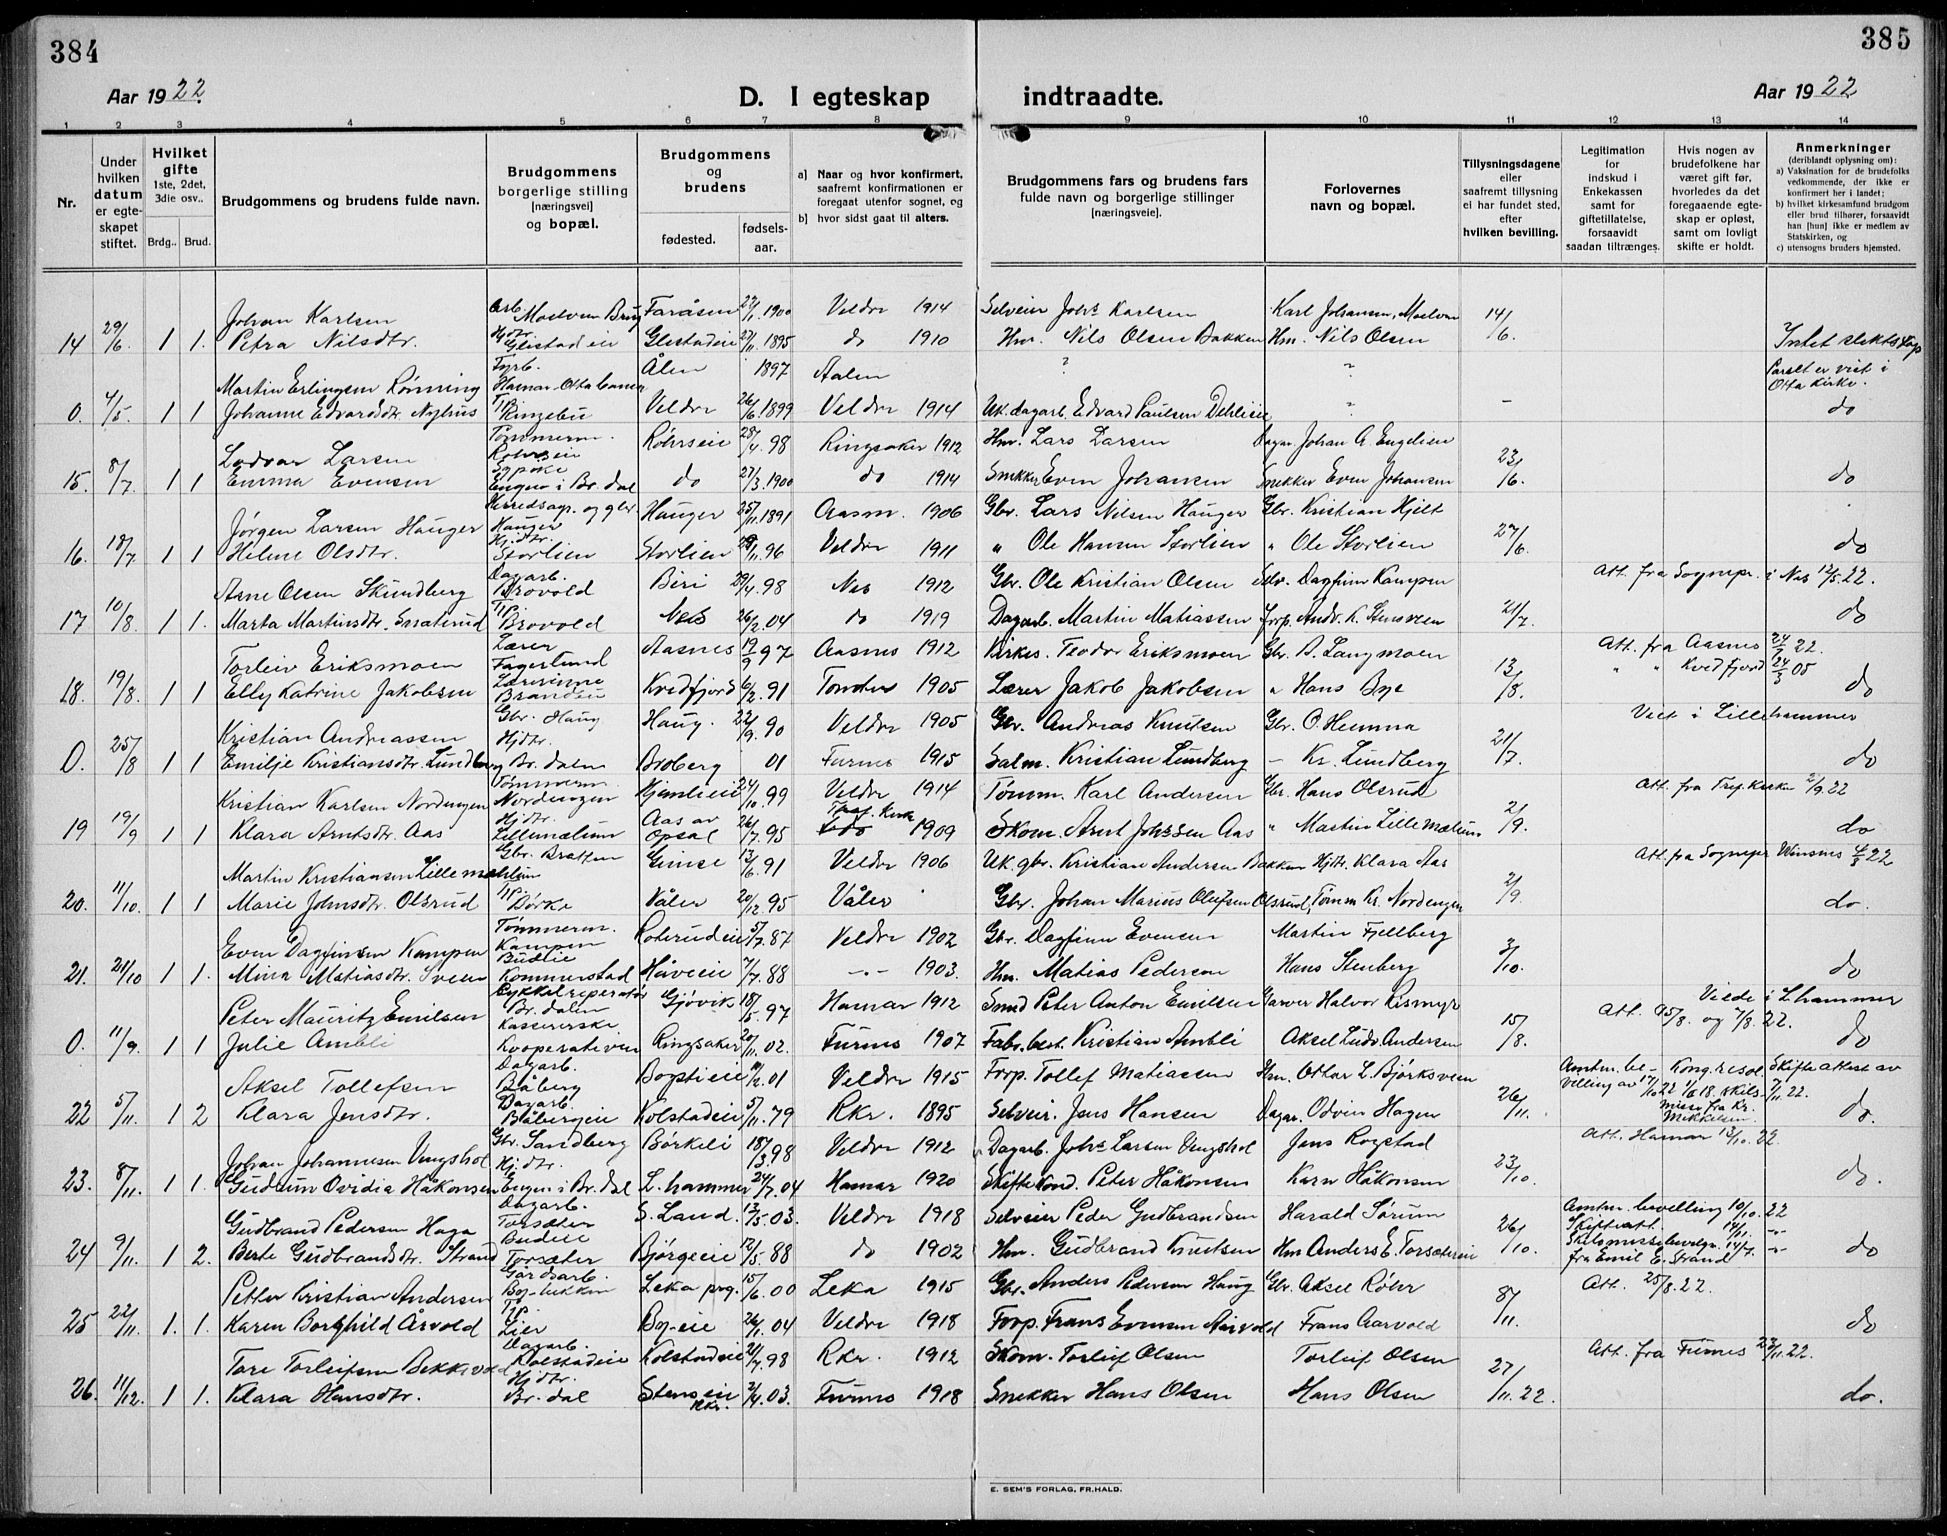 384
385
Aar 1922.
D. I egteskap
indtraadte.
Aar 1922
1 2 3 4 5 6 7 8 9 10 11 12 13 14
Nr.
Under hvilken datum er egteskapet stiftet.
Hvilket gifte
1ste, 2det, 3die osv..
Brdg.. Brud.
Brudgommens og brudens fulde navn.
Brudgommens borgerlige stilling [næringsvei] og bopæl.
Brudgommens og brudens
fødested.
fødsels- aar.
a) Naar og hvor konfirmert, saafremt konfirmationen er foregaat utenfor sognet, og
b) hvor sidst gaat til alters.
Brudgommens fars og brudens fars fulde navn og borgerlige stillinger [næringsveie].
Forlovernes navn og bopæl.
Tillysningsdagene eller saafremt tillysning ei har fundet sted, efter hvilken bevilling.
Legitimation for indskud i Enkekassen samt for giftetillatelse, forsaavidt saadan tiltrænges.
Hvis nogen av brudefolkene har været gift før, hvorledes da det foregaaende egteskap er opløst, samt om lovligt skifte er holdt.
Anmerkninger
(deriblandt oplysning om):
a) Vaksination for de brudefolks vedkommende, der ikke er konfirmert her i landet;
b) hvilket kirkesamfund brudgom eller brud tilhører, forsaavidt han [hun] ikke er medlem av Statskirken, og
c) utensogns bruders hjemsted.
Johan Karlsen Arb. Moelven Brug Faråsen 1900 Veldre 1914 Selveier Johs Karlsen Karl Johansen, Moelven 14/6.
14 29/6 1 1. Petra Nilsdtr. Hjdtr. Glestadeie Glestadeie 27/11 1895 do 1910 Hm. Nils Olsen Bakken Hm. Nils Olsen Intet slektskap
Martin Erlingsen Rønning Hamar-Otta banen Ålen 1897 Aalen ? " Paret er viet i Otta kirke.
O. 4/5 1 1 Johanne Edvardsdtr. Nyhus Ringebu Veldre 26/6 1899 Veldre 1914 Uk. dagarb. Edvard Paulsen Dehlieie - do
Lodvar Larsen Tømmerm. Røhrseie Røhrseie 28/4 98 Ringsaker 1912 Hm. Lars Larsen Dagar. Johan A. Engelien 23/6.
15. 8/7 1 1 Emma Evensen Sypike Engen i Br. dal do 27/3 1900 do 1914 Snekker Even Johansen Snekker Even Johansen do
Jørgen Larsen Hauger Herredsagr. og gbr. Hauger Hauger 25/11 1891 Aasm. 1906 Gbr. Lars Nilsen Hauger Gbr. Kristian Hjelt
16. 18/7 1 1 Helene Olsdtr. Hjdtr. Storlien Storlien 96 Veldre 1911 " Ole Hansen Storlien " Ole Storlien 27/6. do
Arne Olsen Skundberg Dagarb. Brovold Biri 29/4 98 Nes 1912 Gbr. Ole Kristian Olsen Selv. Dagfinn Kampen Att. fra Sognepr. i Nes 12/5 22.
17 10/8 1 1. Marta Martinsdtr. Smæterud Brovold Nes 26/2 04 do 1919 Dagarb. Martin Matiassen Forp. Andr. K. Stensveen 21/7. do
Torleiv Eriksmoen Lærer Fagerlund Aasnes 19/9 97 Aasnes 1912 Kirkes. Teodor Eriksmoen Gbr. A. Langmoen Att. fra Aasnes 22.
18. 19/8 1 1 Elly Katrine Jakobsen Lærerinne Branden Kvedfjord 6/2 91 Tondes 1905 Lærer Jakob Jakobsen " Hans Bye 13/8. " " Kvedfjord 24/3 05 do
Kristian Andreassen Gbr. Haug Haug. 22/9. 90 Veldre 1905 Gbr. Andreas Knutsen Gbr. O. Hemma Viet i Lillehammer
O. 25/8 1 1 Emilje Kristiansdtr. Lundberg Hjdtr. Br. dalen Broberg 01 Furnes 1915 Salm. Kristian Lundberg - Kr. Lundberg 21/7. do
Kristian Karlsen Nordengen Tømmerm. Nordengen Hjemlieie 24/10 99 Veldre 1914 Tømm. Karl Andersen Gbr. Hans Olsrud Att. fra Tref. Kirke 2/9. 22
19 19/9 1 1 Klara Arntsdtr. Aas Hjdtr. Lillemælum Aas av Opsal 26/7. 95 Tref. Kirke 1909 Skom. Arnt Johssen Aas " Martin Lillemælum 2/9. do
Martin Kristiansen Lillemælum Gbr. Bratten Gimse 13/6. 91 Veldre 1906 Uk. gbr. Kristian Andersen Bakken Hjdtr. Klara Aas Att. fra Sognepr. Winsnes 22
20. 11/10. 1 1 Marie Johnsdtr. Olsrud Børke Våler 20/12. 95 Våler Gbr. Johan Marius Olufsen Olsrud, Tømm Kr. Nordengen 2/9. do.
Even Dagfinsen Kampen Tømmerm. Kampen Rohrudeie 5/7. 87 Veldre 1902 Gbr. Dagfinn Evensen Martin Fjellberg
21. 21/10 1 1. Mina Matiasdtr. Sveen Budeie Kommerstad Håveeie 7/7. 88 -"- 1903. Hm. Matias Pederson Hans Stenberg 3/10. do
Peter Mauritz Emilsen Cykkelreperatør Br. dalen Gjøvik 18/5. 97 Hamar 1912 Smed Peter Anton Emilsen Garver Halvor Rismyr Viede i L.hammer
O. 11/9. 1 1 Julie Ambli Kassererske Kooperativen Ringsaker 20/11. 02. Furnes 1907 Fabr. best. Kristian Ambli Aksel Ludv. Andersen 15/8. og 7/8. 22. do
Aksel Tollefsen Dagarb. Båberg Bogstieie 01 Veldre 1915 Forp. Tollef Matiassen Hm. Ottar L. Bjørksveen Amtm. bevelling av 17/10 22 Kong. resol. 18. skilsmisse fra Kr. Mikkelsen. Skifteattest av 7/11. 22.
22 5/11. 1 2 Klara Jensdtr. Dagarb. Båbergeie Kolstadeie 5/11. 79 Rkr. 1895 Selveier. Jens Hansen Dagar. Odvin Hagen 26/11. do.
Johan Johannesen Vengshol Gbr. Sandberg Børkeli 18/3. 98 Veldre 1912 Dagarb. Johs Larsen Vengshol Jens Rogstad Att. Hamar 13/10. 22.
23. 8/11. 1 1. Gudrun Ovidia Håkonsen Hjdtr. Engen i Br. dal L. hammer 24/7. 04 Hamar 1920 Skiftekond. Peter Håkonsen Karn Håkonsen 23/10. do.
Gudbrand Pedersen Haga Dagarb. Torsæter S. Land. 13/5. 03. Veldre 1918 Selveier Peder Gudbrandsen Harald Sørum Amtm. bevelling 10/10. 22
24 9/11. 1 2. Berte Gudbrandsdtr. Strand Budeie Torsæter Bjørgeeie 12/5. 88 do 1902 Hm. Gudbrand Knutsen Hm Anders E. Torsætereie 26/10. Skifteatt. 14/11. -"- Skilsmissebevelgn. 14/7. -"- fra Emil E. Strand do
Petter Kristian Andersen Gårdsarb. Leka prg. 15/6. 00 Leka 1915 Gbr. Anders Pedersen Haug Gbr. Aksel Røhr Att. 25/8. 22.
25 22/11. 1. 1. Karen Borghild Årvold Tp. Lier Bg-eie 26/11. 04 Veldre 1918 Forp. Frans Evensen Aarvold Frans Aarvold 8/11. do
Tore Torleifsen Bekkevold Dagarb. Kolstadeie Kolstadeie 21/7. 98 Rkr. 1912 Skom. Torleif Olsen Torleif Olsen Att. fra Furnes 23/11. 22.
26. 11/12. 1 1 Klara Hansdtr. Hjdtr. Br. dal Stenseie Rkr. 2/4. 03. Furnes 1918 Snekker Hans Olsen Hans Olsen 27/11. 22. do.
E. SEM'S FORLAG, FR.HALD.